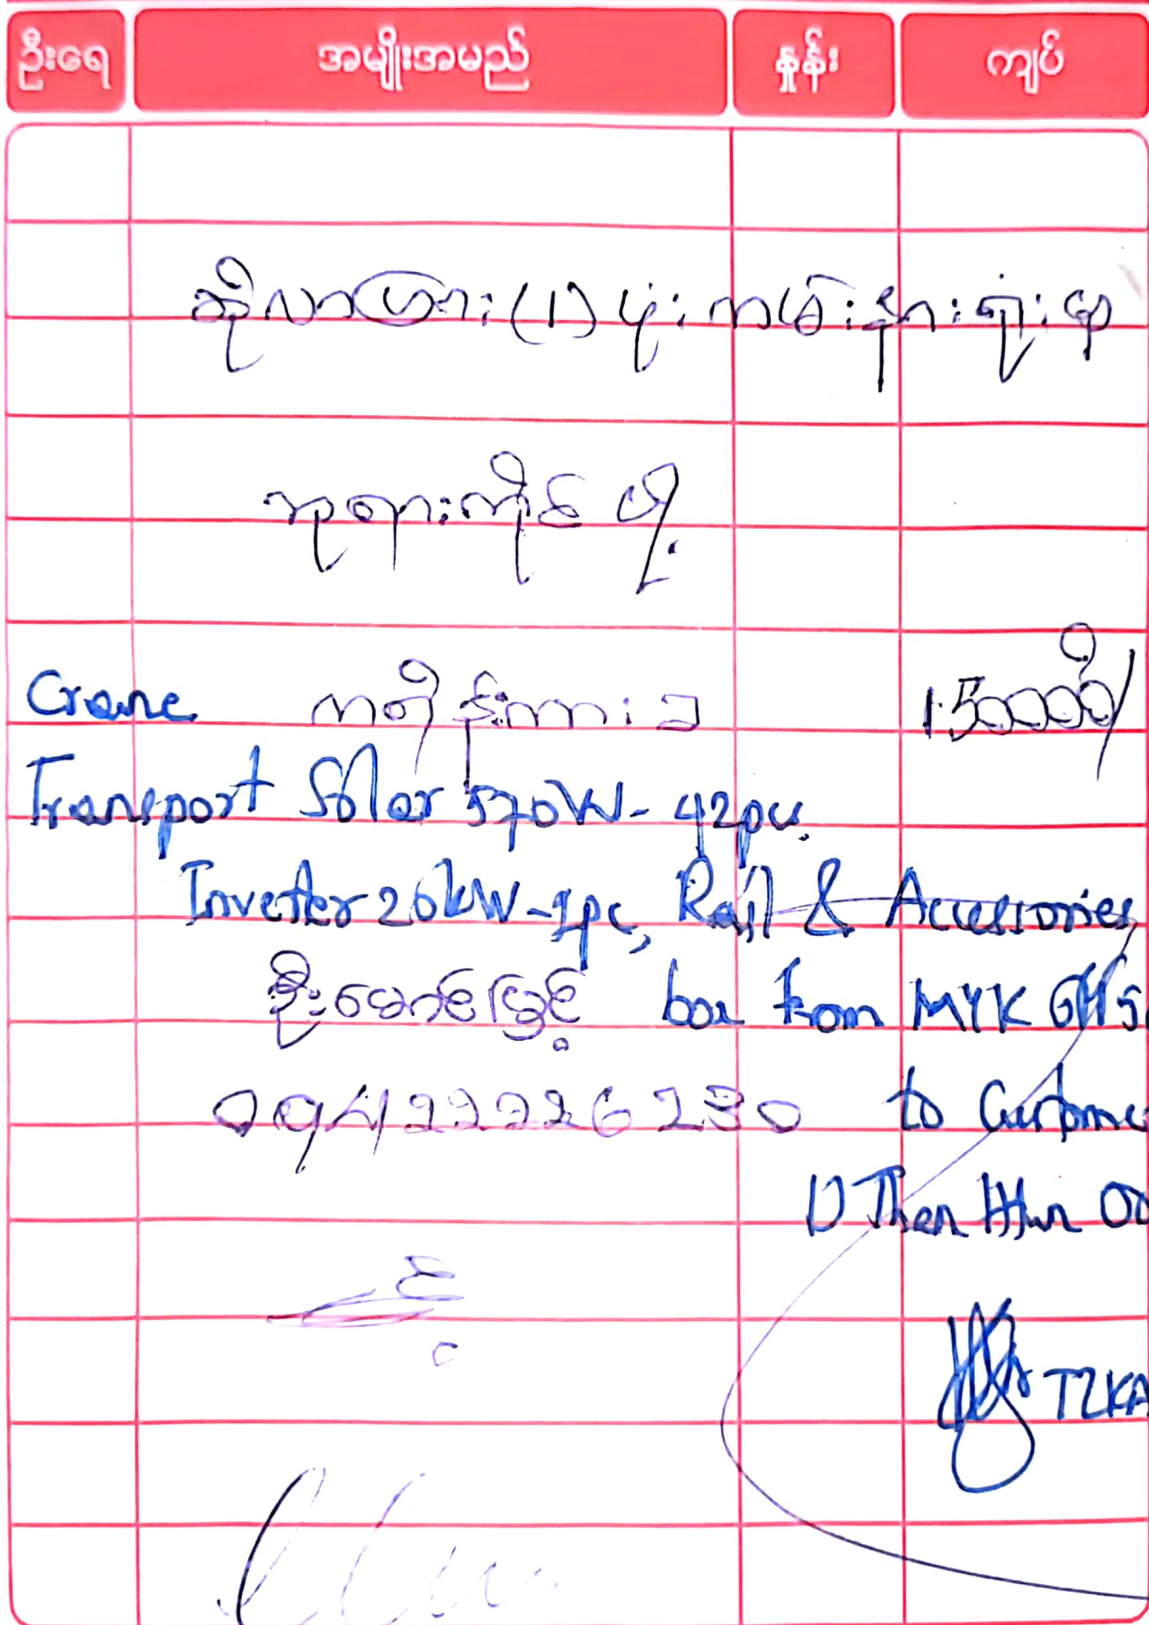 ဦးရေ အမျိုးအမည် နှုန်း ကျပ်
ဆိုလာပြား (၁) ပုံး ကမ်းနားရုံးမှ
ဘုရားကိုင် ပို့
Crane ကရိန်းကားခ 150000/
Transport Solar 570W - 42pcs.
Inverter 20kW - 1pc, Rail & Accessories
ဦးမောင်မြင့် box from MYK
09422226230 to Custome
U Then Htun Oo
TZKA